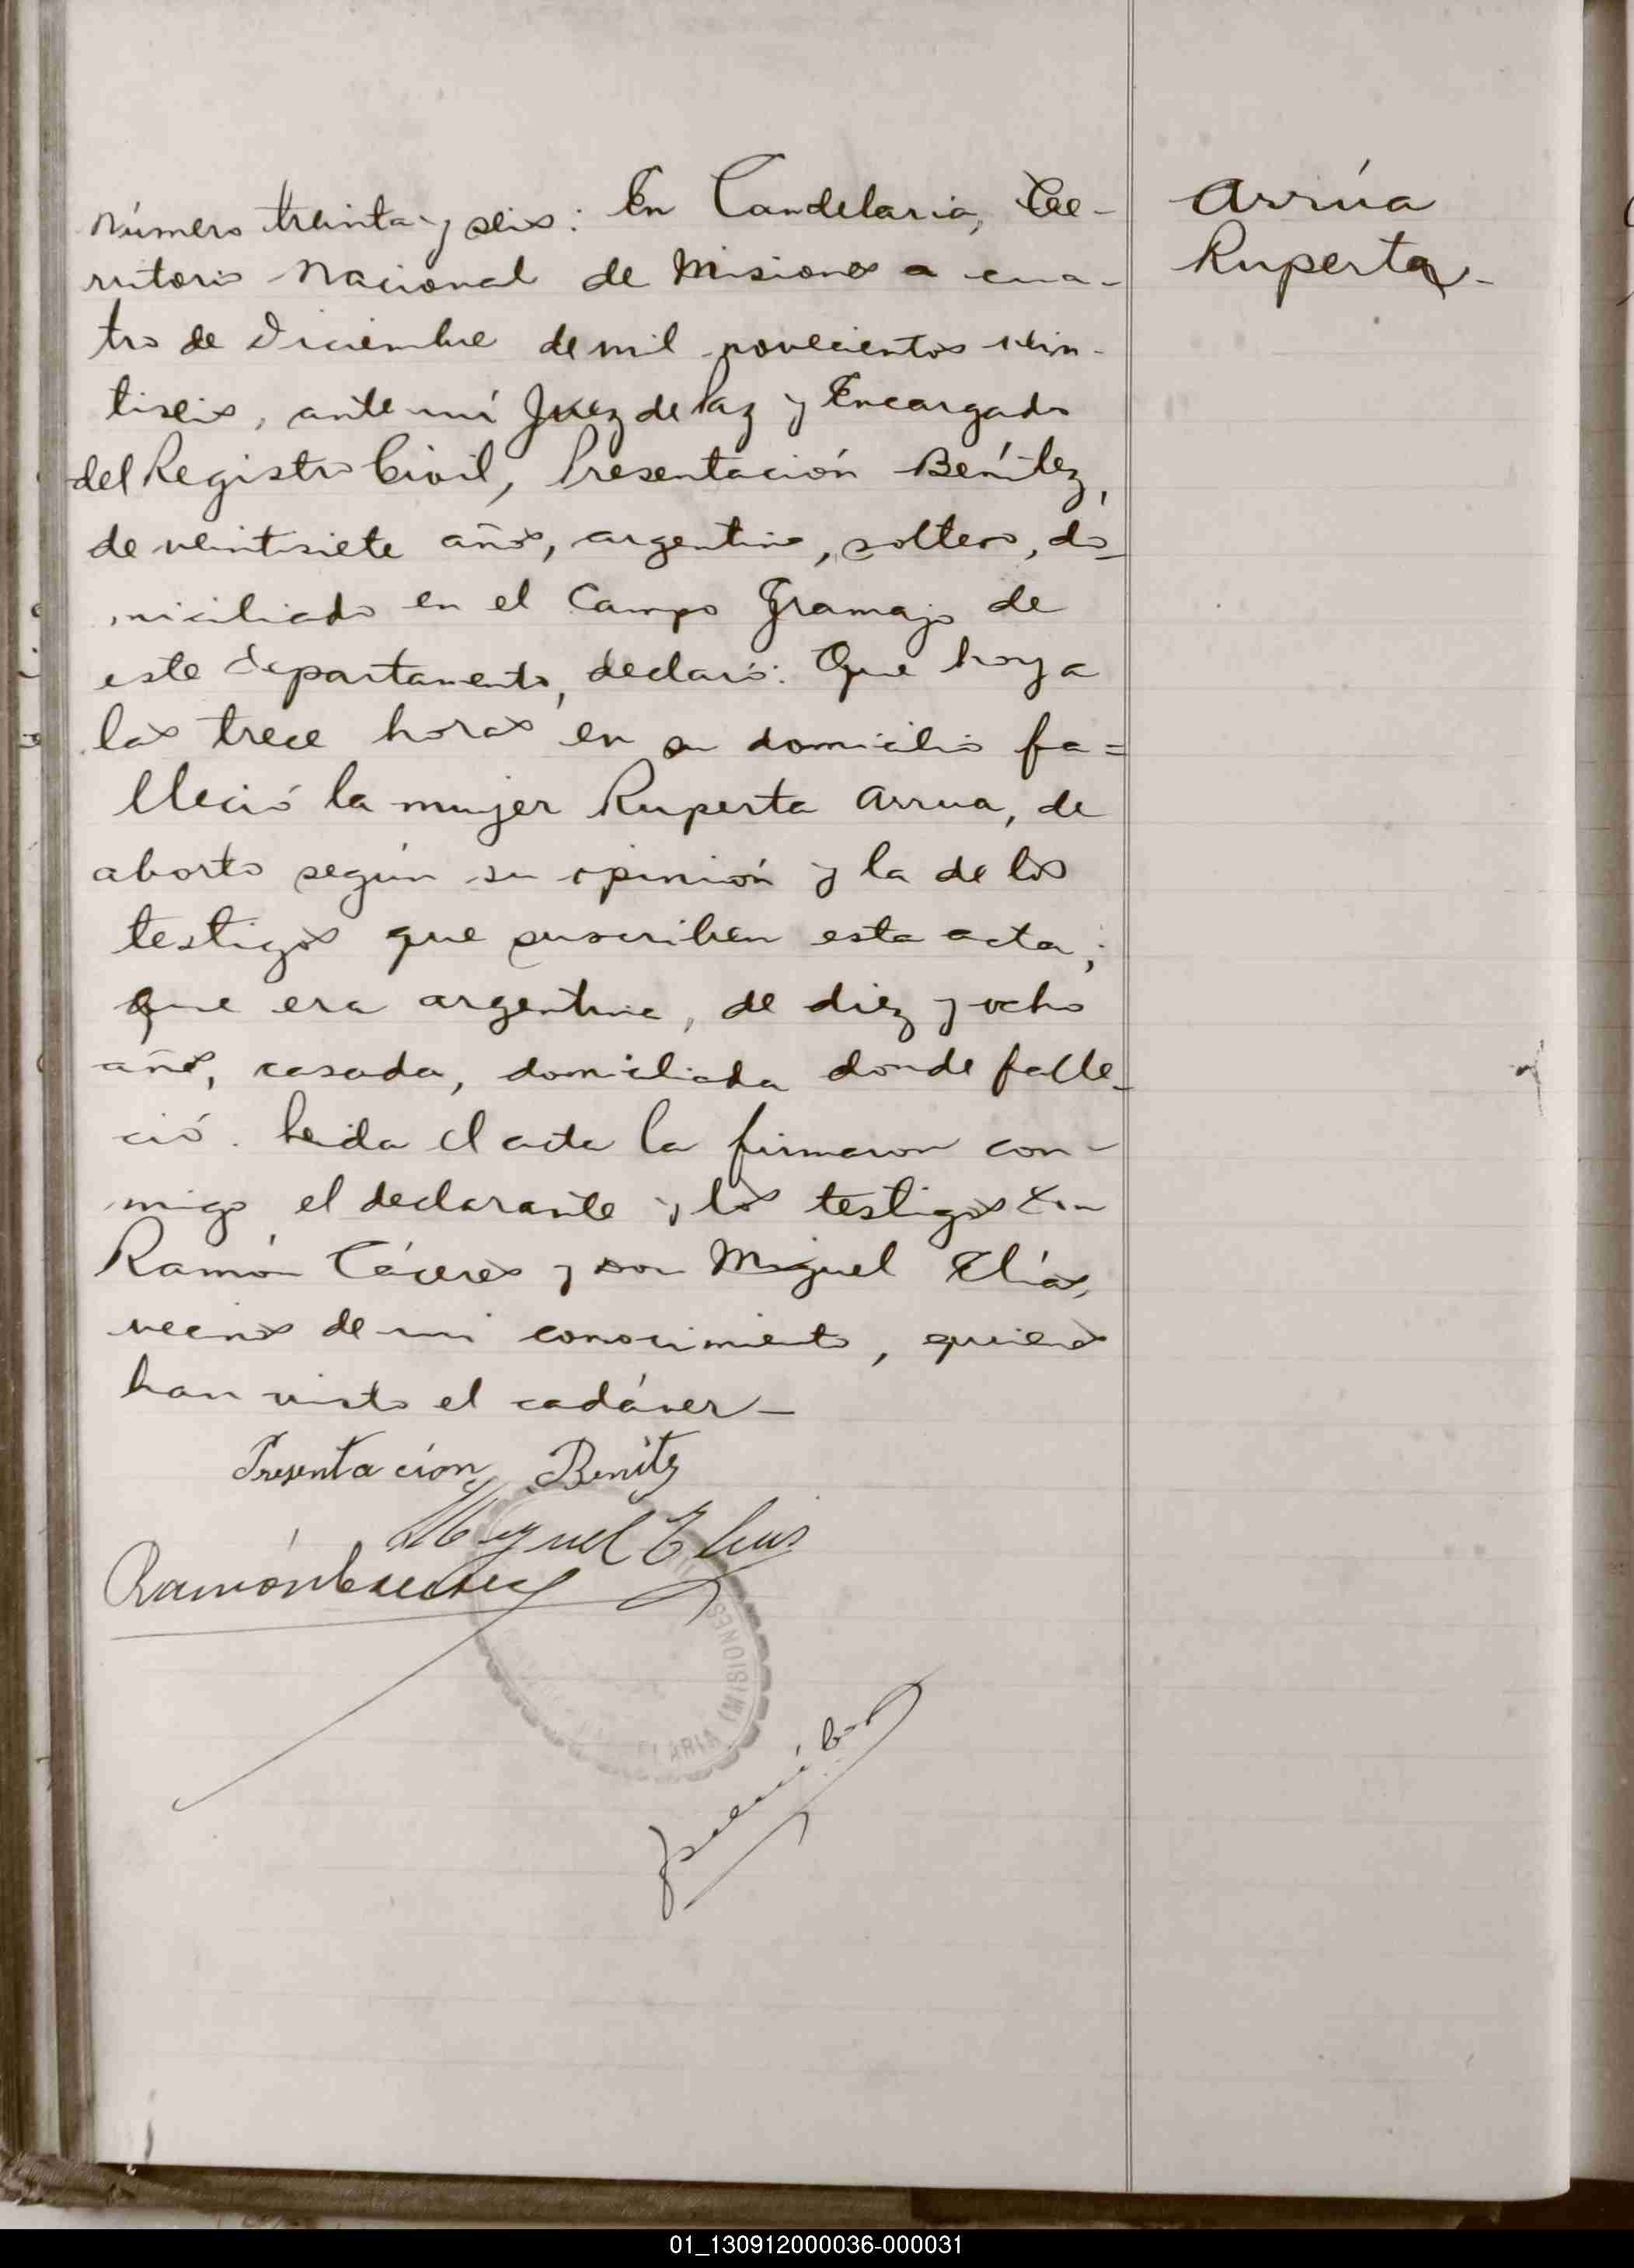 Número treinta y seis: En Candelaria, Te-
rritorio Nacional de Misiones a cua-
tro de Diciembre de mil novecientos vein-
tiseis, ante mí Juez de Paz y Encargado
del Registro Civil, Presentación Benítez,
de veintisiete años, argentino, soltero, do-
miciliado en el Campo Gramajo de
este departamento, declaró: Que hoy a
las trece horas en su domicilio fa=
lleció la mujer Ruperta Arrua, de
aborto según su opinión y la de los
testigos que suscriben esta acta;
que era argentina, de diez y ocho
años, casada, domiciliada donde falle-
ció. Leida el acta la firmaron con-
migo el declarante y los testigos don
Ramón Cáceres y don Miguel Elías,
vecinos de mi conocimiento, quienes
han visto el cadáver—
Arrúa
Ruperta.-
Presentación Benitez
Miguel Elias
Ramón Caceres
MISIONES
01_130912000036-000031